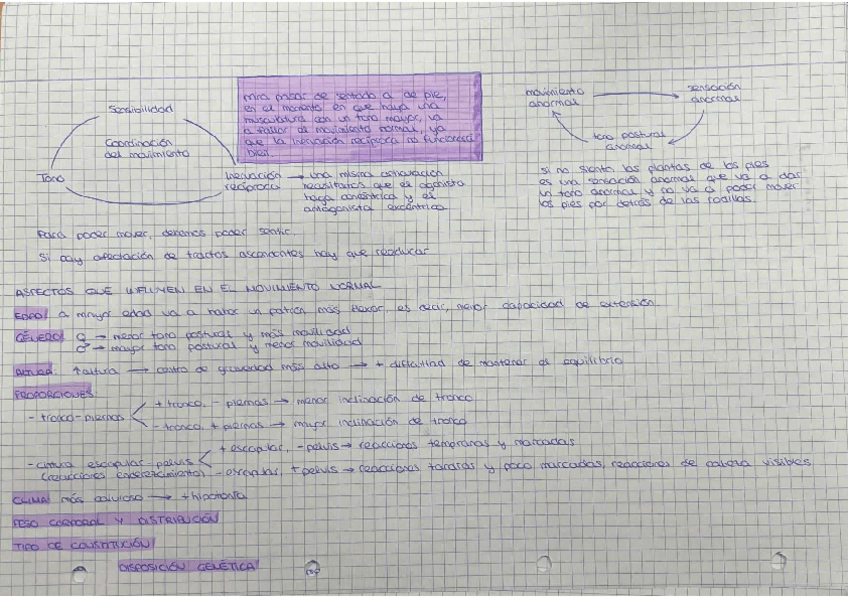 Sensibilidad
Coordinación
del movimiento
Tono
Inervación → una misma estimulación
recíproca necesitamos que el agonista
haga concéntrica y el
antagonista excéntrica
para pasar de sentado a de pie,
en el momento en que haya una
musculatura con un tono mayor, va
a fallar el movimiento normal, ya
que la inervación recíproca no funcionará
bien.
movimiento
anormal
sensación
anormal
tono postural
anormal
Si no siento las plantas de los pies
es una sensación anormal que va a dar
un tono anormal y no va a poder mover
los pies por detrás de las rodillas.
Para poder mover, debemos poder sentir.
Si hay afectación de tractos ascendentes hay que reeducar
ASPECTOS QUE INFLUYEN EN EL MOVIMIENTO NORMAL
EDAD: a mayor edad va a haber un patrón más flexor, es decir, menor capacidad de extensión.
GÉNERO: ♀ → menor tono postural y más movilidad
♂ → mayor tono postural y menor movilidad
ALTURA: + altura → centro de gravedad más alto → + dificultad de mantener el equilibrio
PROPORCIONES:
- tronco-piernas
+ tronco, - piernas → menor inclinación de tronco
- tronco, + piernas → mayor inclinación de tronco
- cintura escapular-pelvis
(reacciones enderezamiento)
+ escapular, - pelvis → reacciones tempranas y marcadas
- escapular, + pelvis → reacciones tardías y poco marcadas, reacciones de cabeza visibles
CLIMA: más caluroso → + hipotonía
PESO CORPORAL Y DISTRIBUCIÓN
TIPO DE CONSTITUCIÓN
DISPOSICIÓN GENÉTICA